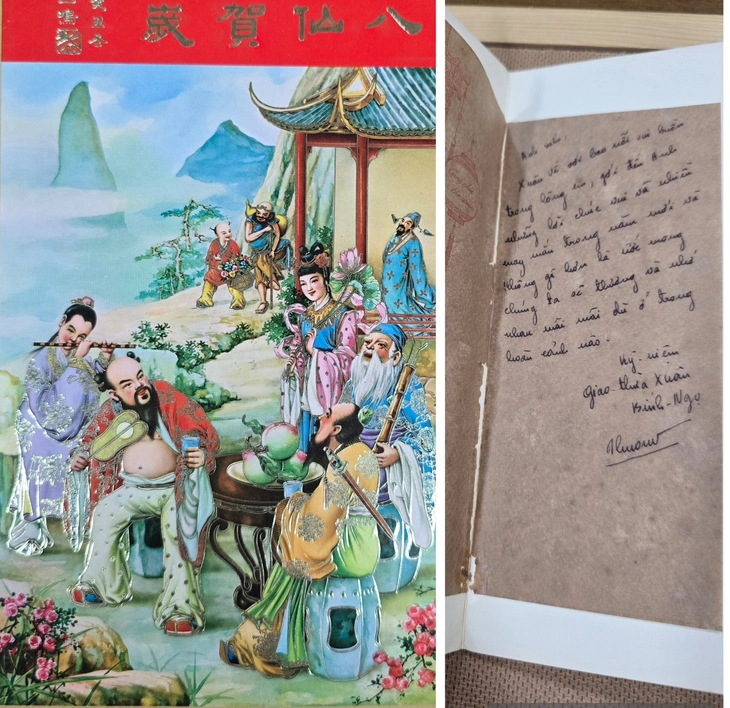 八仙賀歲
Anh
Xuân về với bao nỗi vui buồn
trong lòng em, gởi đến Anh
những lời chúc vui vẻ và nhiều
may mắn trong năm mới và
không gì hơn là ước mong
chúng ta sẽ thương và nhớ
nhau mãi mãi dù ở trong
hoàn cảnh nào.
Kỷ-niệm
Giao-thừa Xuân
Bính-Ngọ